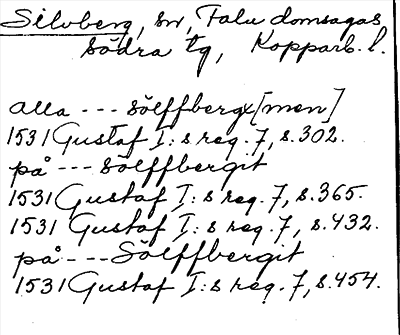 Silvberg, sn, Falu domsagas
södra tg, Kopparb. l.
alla --- sölffbergx[men]
1531 Gustaf I:s reg. 7, s. 302.
på --- sölffbergit
1531 Gustaf I:s reg. 7, s. 365.
1531 Gustaf I:s reg. 7, s. 432.
på --- Sölffbergit
1531 Gustaf I:s reg. 7, s. 454.